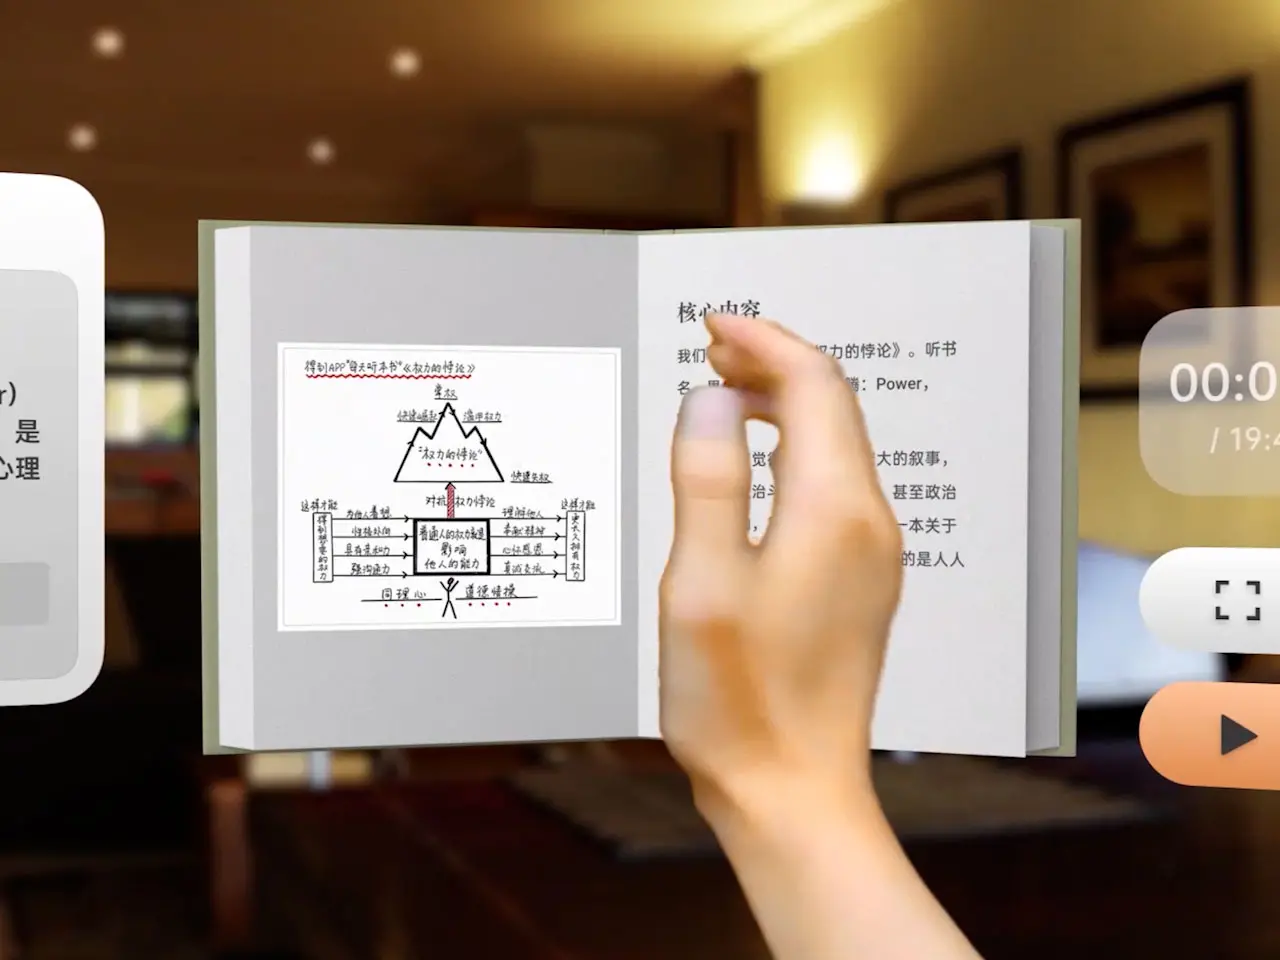 r)
是
心理
得到APP"每天听本书"《权力的悖论》
掌权
快速崛起 滥用权力
"权力的悖论"
快速失权
对抗权力悖论
这样才能 这样才能
得到想要的权力
为他人着想
性格外向
具有亲和力
强沟通力
普通人的权力就是
影响
他人的能力
理解他人
奉献精神
心怀感恩
真诚交流
更长久拥有权力
同理心 道德情操
核心内容
我们 权力的悖论》。听书
名 腾：Power，
觉得 大的叙事，
治斗 甚至政治
， 一本关于
的是人人
00:0
/ 19:4